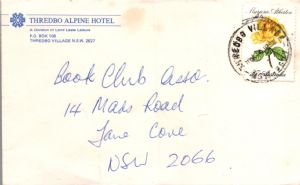 THREDBO ALPINE HOTEL
A Division of Lend Lease Leisure
P.O. BOX 108
THREDBO VILLAGE N.S.W. 2627
THREDBO VILLAGE
Australia
Book Club Asso.
14 Mars Road
Lane Cove
NSW 2066